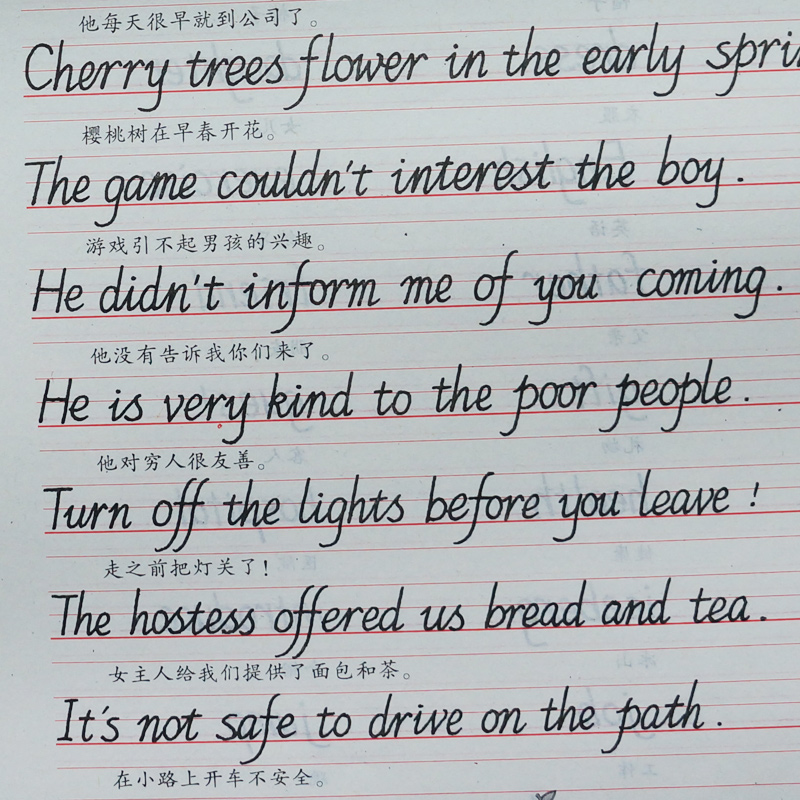 他每天很早就到公司了。
Cherry trees flower in the early
樱桃树在早春开花。
The game couldn't interest the boy.
游戏引不起男孩的兴趣。
He didn't inform me of you coming.
他没有告诉我你们来了。
He is very kind to the poor people.
他对穷人很友善。
Turn off the lights before you leave!
走之前把灯关了!
The hostess offered us bread and tea.
女主人给我们提供了面包和茶。
It's not safe to drive on the path.
在小路上开车不安全。